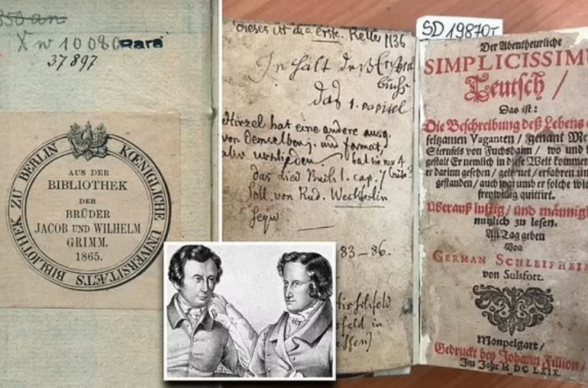 Xw 10080 Rara
37 897
KOENIGLICHE UNIVERSITÆTS BIBLIOTHEK ZU BERLIN
AUS DER
BIBLIOTHEK
DER
BRÜDER
JACOB UND WILHELM
GRIMM.
1865.
Dieses ist die erste.
Inhalt des Ersten
Buchs
das 1. capitel
Hirzel hat eine andere ausg.
von demselben j. und format,
das 1. cap.
soll von Rud. Weckherlin
seyn
83-86.
SD 19870r
Der Abentheurliche
SIMPLICISSIMU
Teutsch /
Das ist:
Die Beschreibung deß Lebens
selzamen Vaganten / genant Me
Sternfels von Fuchshaim / wo und
gestalt Er nemlich in diese Welt kommen
er darinn gesehen / gelernet / erfahren und
gestanden / auch warumb er solche wi
freywillig quittirt.
Uberauß lustig / und männigl
nutzlich zu lesen.
An Tag geben
Von
GERMAN SCHLEIFHEIM
von Sulsfort.
Monpelgart /
Gedruckt bey Johann Fillion
Im Jahr M DC LXIX.